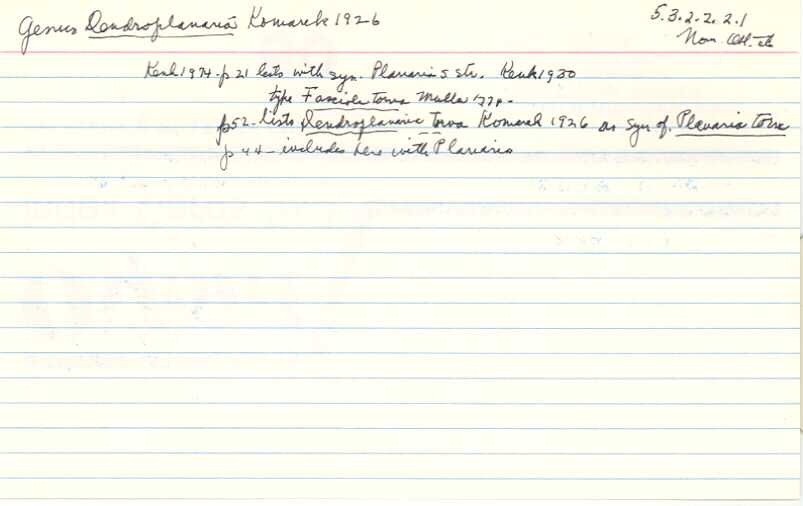 Genus Dendroplanaria Komarek 1926
5.3.2.2.2.1
Nom.
Kenk 1974-p 21 lists with syn. Planaria s str. Kenk 1930
type Fasciola torva Mulla 177
p52-lists Dendroplanaria torva Komarek 1926 as syn of. Planaria torva
p 44-includes here with Planaria